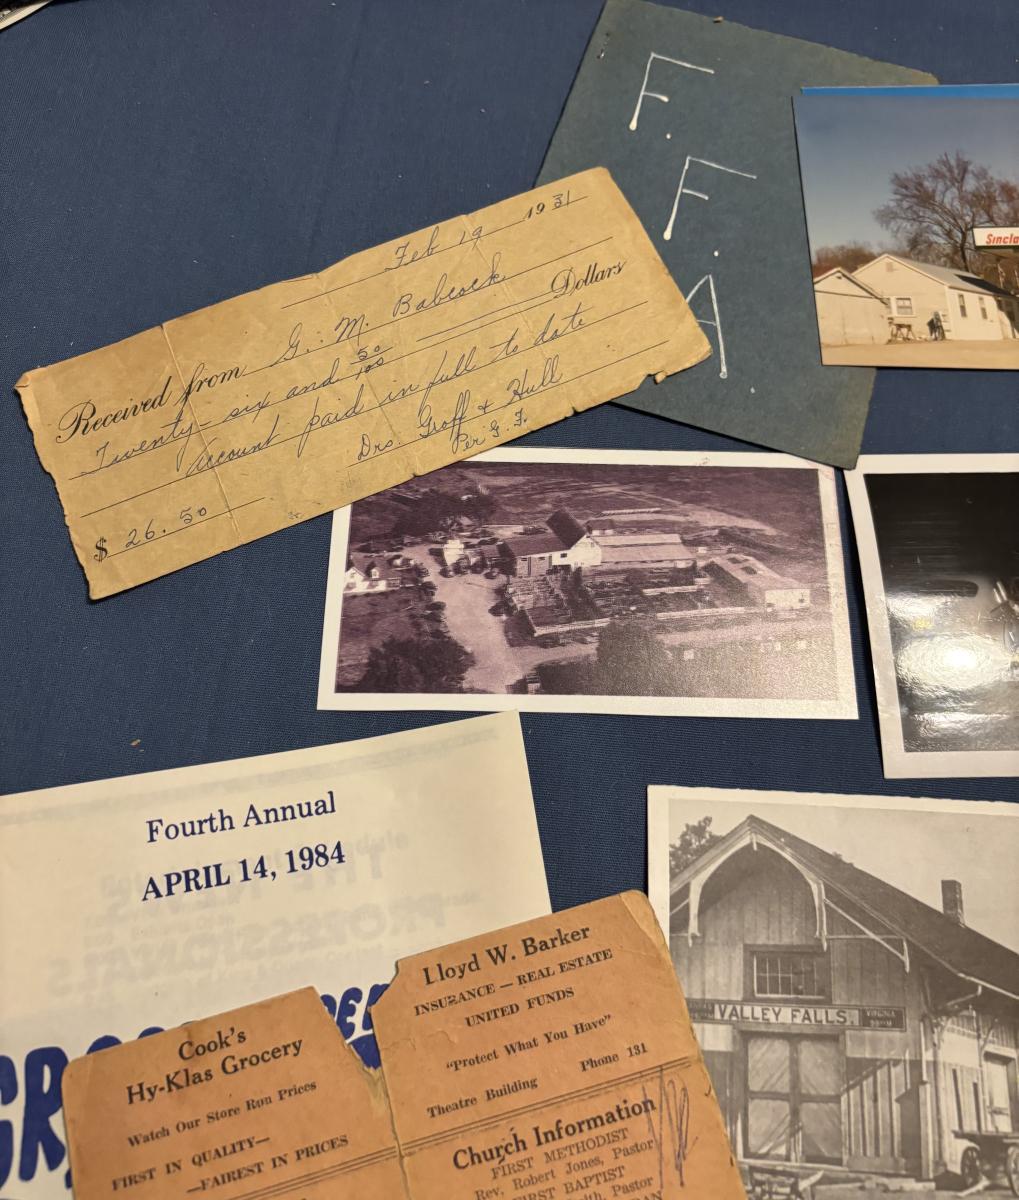 F.
F.
A.
Sincla
Feb 19 1931
Received from G. M. Babcock
Twenty-six and 50/100 Dollars
account paid in full to date
Drs. Groff & Hull
Per G. F.
$ 26.50
Fourth Annual
APRIL 14, 1984
Cook's
Hy-Klas Grocery
Watch Our Store Run Prices
FIRST IN QUALITY—
—FAIREST IN PRICES
Lloyd W. Barker
INSURANCE — REAL ESTATE
UNITED FUNDS
"Protect What You Have"
Theatre Building Phone 131
Church Information
FIRST METHODIST
Rev. Robert Jones, Pastor
FIRST BAPTIST
Pastor
VALLEY FALLS.